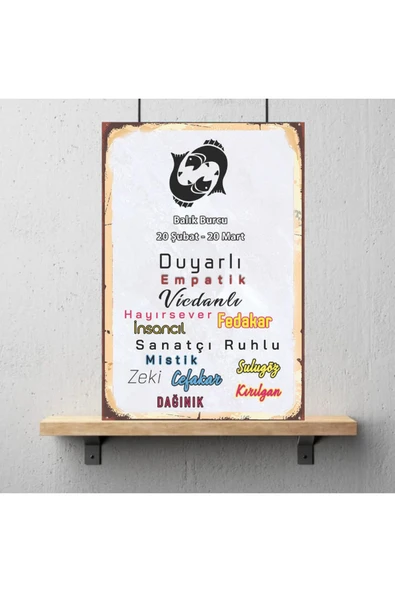 Balık Burcu
20 Şubat - 20 Mart
Duyarlı
Empatik
Vicdanlı
Hayırsever
Fedakar
İnsancıl
Sanatçı Ruhlu
Mistik
Sulugöz
Zeki
Cefakar
Kırılgan
DAĞINIK